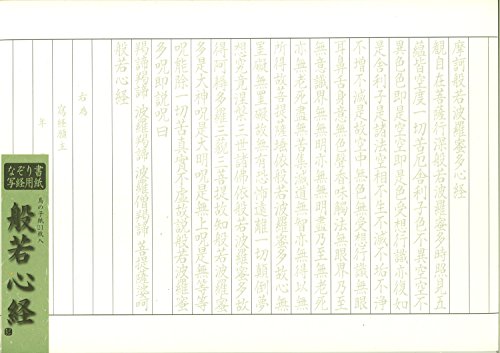 摩訶般若波羅蜜多心経
観自在菩薩行深般若波羅蜜多時照見五
蘊皆空度一切苦厄舎利子色不異空空不
異色色即是空空即是色受想行識亦復如
是舎利子是諸法空相不生不滅不垢不浄
不増不減是故空中無色無受想行識無眼
耳鼻舌身意無色聲香味觸法無眼界乃至
無意識界無無明亦無無明盡乃至無老死
亦無老死盡無苦集滅道無智亦無得以無
所得故菩提薩埵依般若波羅蜜多故心無
罣礙無罣礙故無有恐怖遠離一切顛倒夢
想究竟涅槃三世諸佛依般若波羅蜜多故
得阿耨多羅三藐三菩提故知般若波羅蜜
多是大神呪是大明呪是無上呪是無等等
呪能除一切苦真實不虚故説般若波羅蜜
多呪即説呪曰
羯諦羯諦 波羅羯諦 波羅僧羯諦 菩提薩婆訶
般若心経
右為
写経願主
年
なぞり書
写経用紙
般若心経